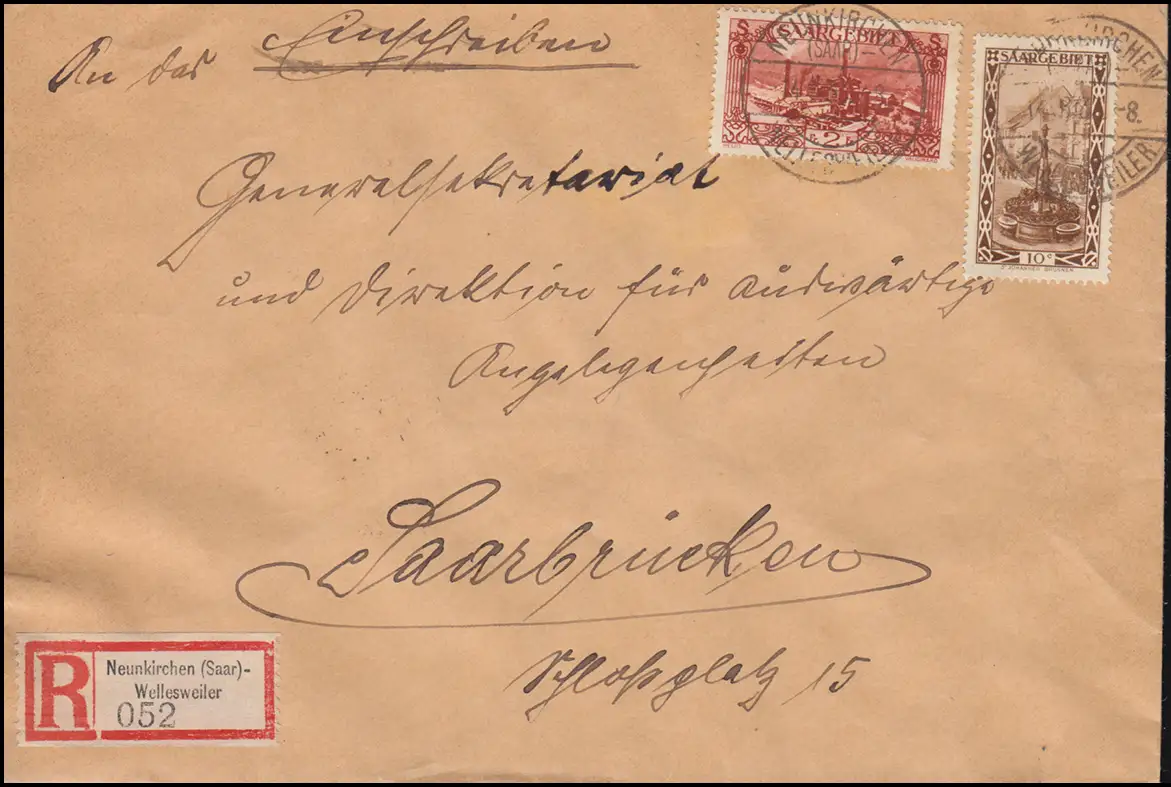 Einschreiben
An das
Generalsekretariat
und Direktion für Auswärtige
Angelegenheiten
Saarbrücken
Schloßplatz 15
SAARGEBIET
2
NEUNKIRCHEN
(SAAR)
WELLESWEILER
SAARGEBIET
10c
ST JOHANNER BRUNNEN
NEUNKIRCHEN
-8.
WELLESWEILER
R
Neunkirchen (Saar)-
Wellesweiler
052